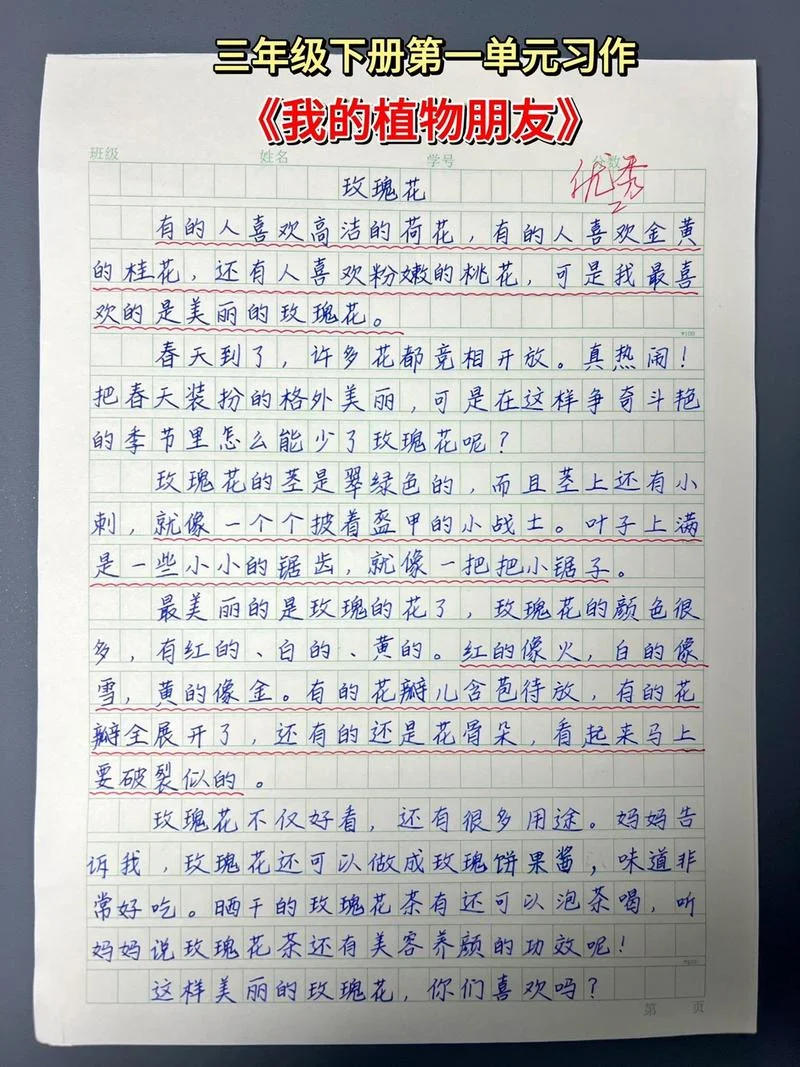 三年级下册第一单元习作
《我的植物朋友》
班级 姓名 学号 分数
优秀
玫瑰花
有的人喜欢高洁的荷花，有的人喜欢金黄
的桂花，还有人喜欢粉嫩的桃花，可是我最喜
欢的是美丽的玫瑰花。
春天到了，许多花都竞相开放。真热闹！
把春天装扮的格外美丽，可是在这样争奇斗艳
的季节里怎么能少了玫瑰花呢？
玫瑰花的茎是翠绿色的，而且茎上还有小
刺，就像一个个披着盔甲的小战士。叶子上满
是一些小小的锯齿，就像一把把小锯子。
最美丽的是玫瑰的花了，玫瑰花的颜色很
多，有红的、白的、黄的。红的像火，白的像
雪，黄的像金。有的花瓣儿含苞待放，有的花
瓣全展开了，还有的还是花骨朵，看起来马上
要破裂似的。
玫瑰花不仅好看，还有很多用途。妈妈告
诉我，玫瑰花还可以做成玫瑰饼果酱，味道非
常好吃。晒干的玫瑰花茶有还可以泡茶喝，听
妈妈说玫瑰花茶还有美容养颜的功效呢！
这样美丽的玫瑰花，你们喜欢吗？
第 页